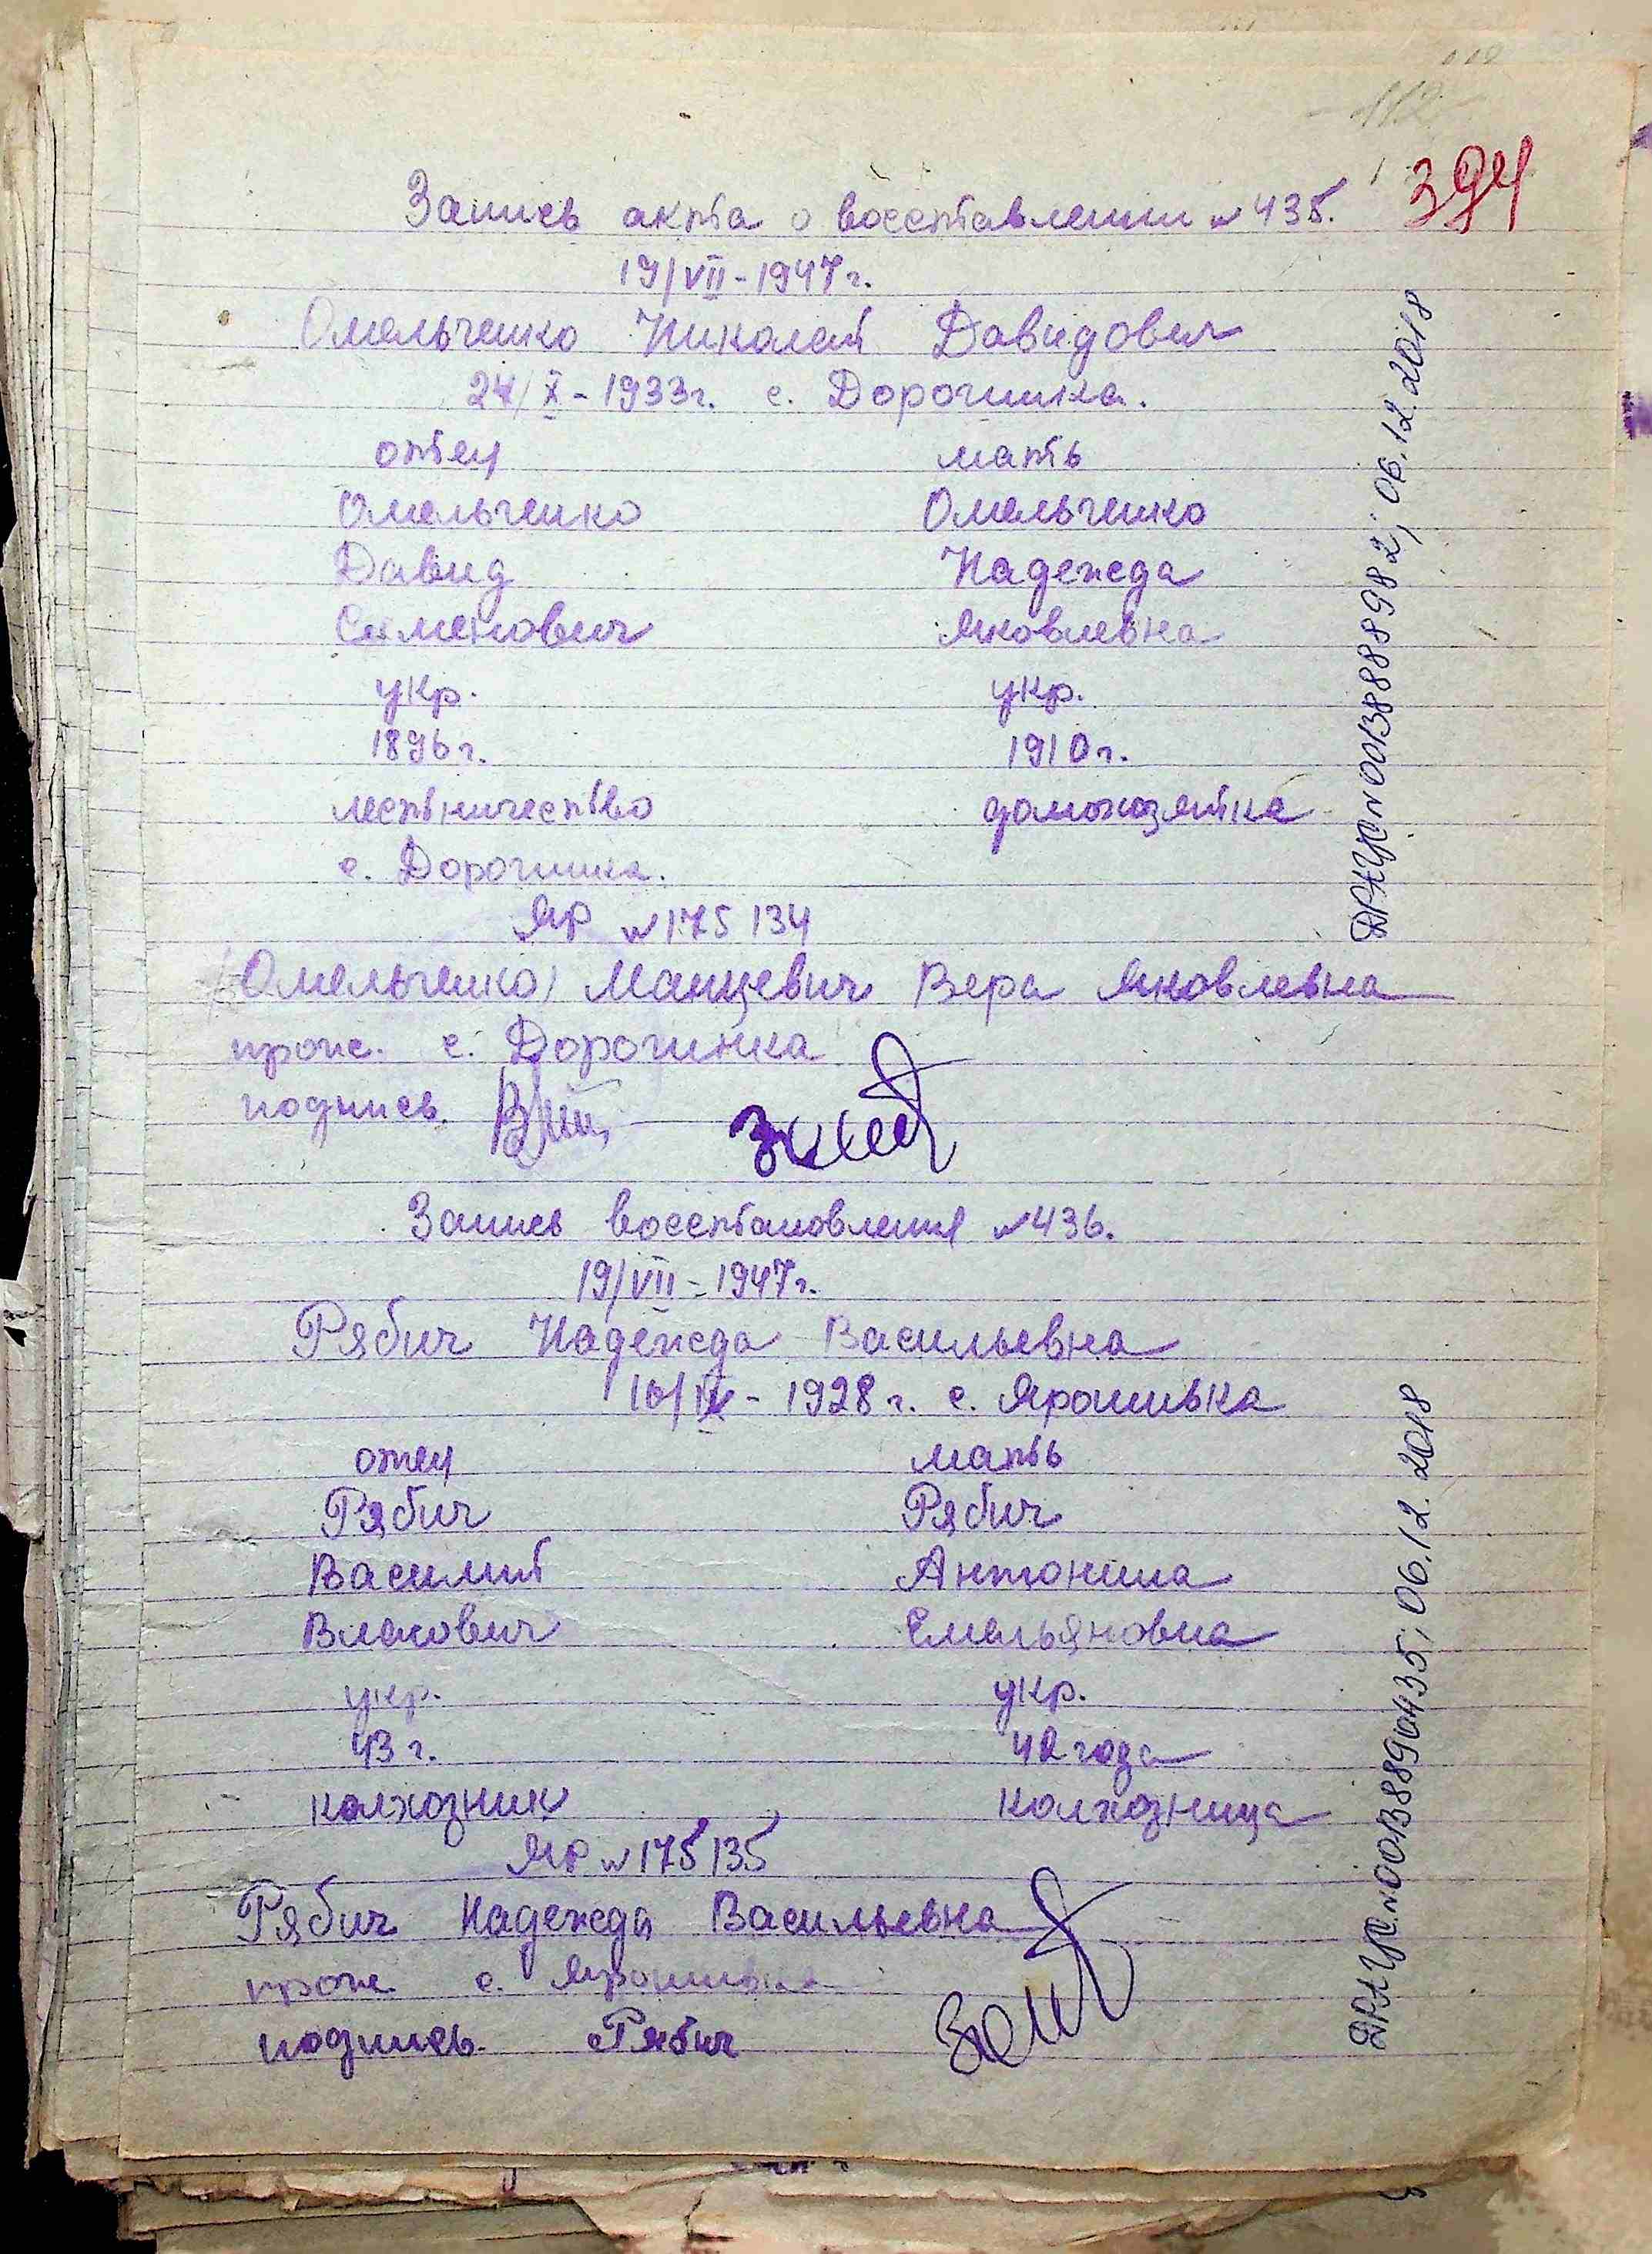 112
394
Запись акта о восставлении №435.
19/VII-1947г.
Омельченко Николай Давидович
24/X-1933г. с. Дорогинка.
отец мать
Омельченко Омельченко
Давид Надежда
Семенович Яковлевна
укр. укр.
1896г. 1910г.
лестничество домохозяйка
с. Дорогинка.
ЯР №175134
(Омельченко) Манцевич Вера Яковлевна
прож. с. Дорогинка
подпись.
Запись восстановления №436.
19/VII-1947г.
Рябич Надежда Васильевна
10/IX-1928г. с. Ярошивка
отец мать
Рябич Рябич
Василий Антонина
Власович Емельяновна
укр. укр.
43г. 42года
колхозник колхозница
ЯР №175135
Рябич Надежда Васильевна
прож. с. Ярошивка
подпись. Рябич
ДРАЦС №00138888982; 06.12.2018
ДРАЦС №00138890435; 06.12.2018